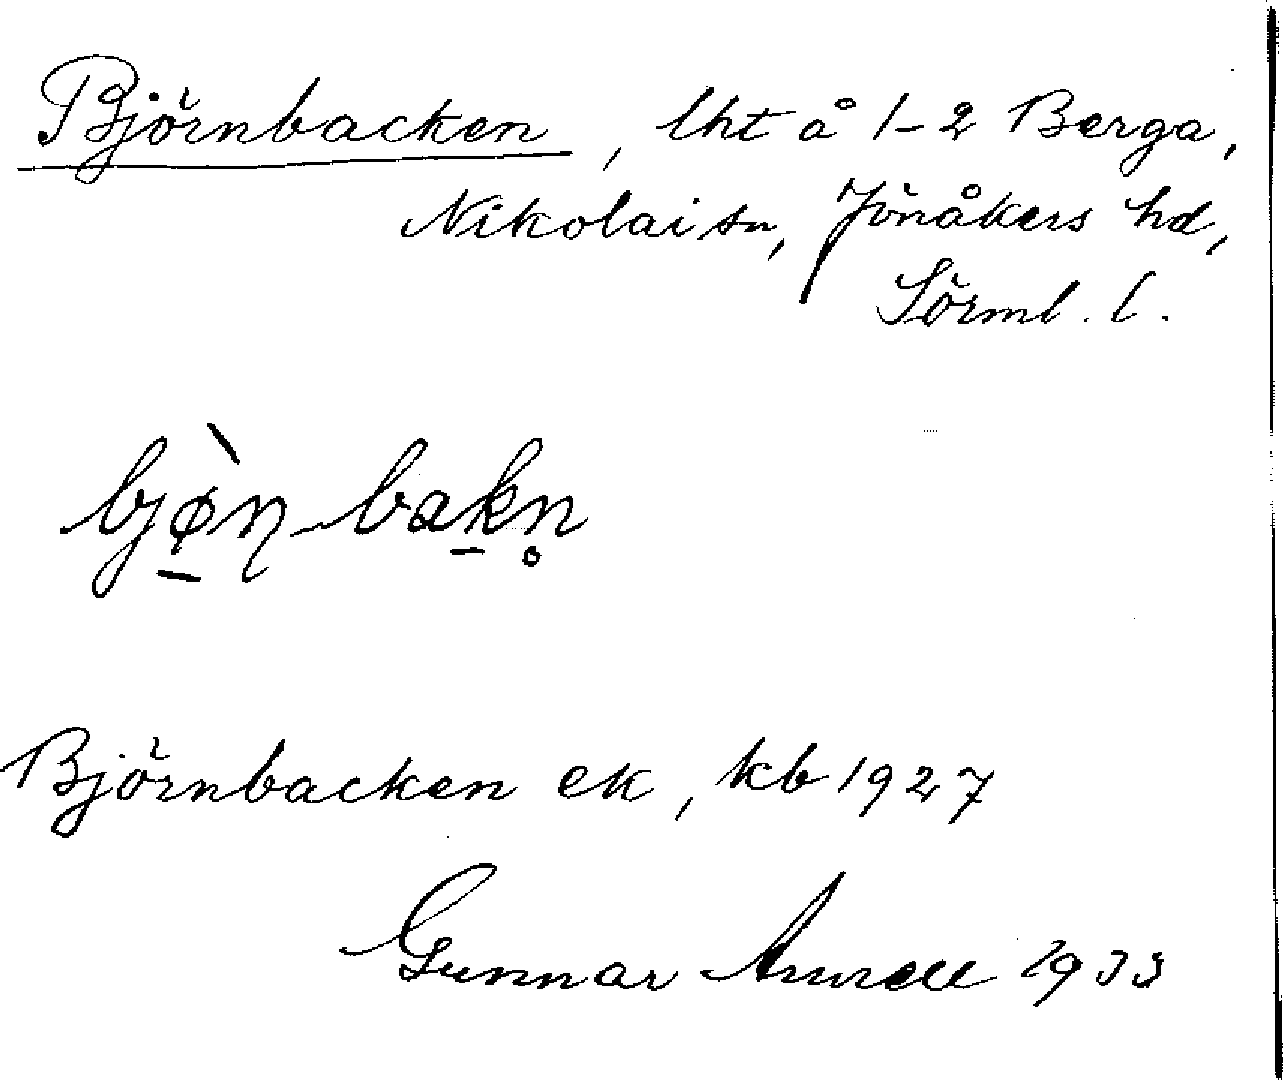 Björnbacken, lht å 1-2 Berga,
Nikolai sn, Jönåkers hd,
Sörml. l.
bjø̀ɳbakn̥
Björnbacken ek, kb 1927
Gunnar 1933